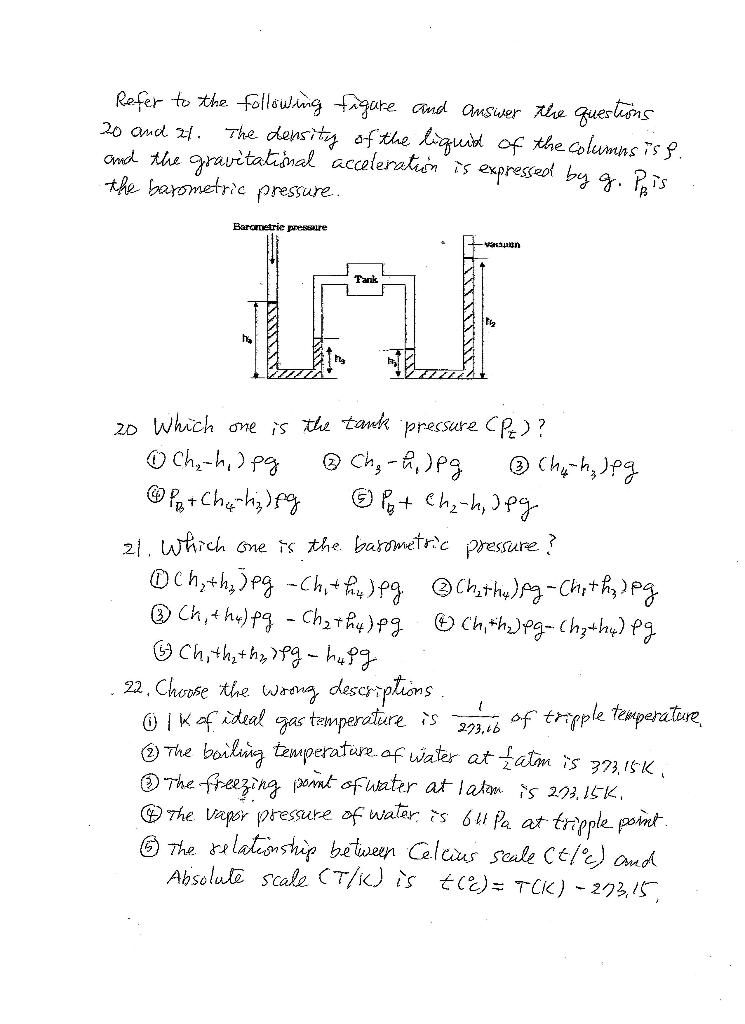 Refer to the following figure and answer the questions
20 and 21. The density of the liquid of the columns is ρ.
and the gravitational acceleration is expressed by g. P_B is
the barometric pressure.
Barometric pressure
vacuum
Tank
h₂
20 Which one is the tank pressure (P_t)?
① (h₂-h₁)ρg ② (h₃-h₁)ρg ③ (h₄-h₃)ρg
④ P_B+(h₄-h₃)ρg ⑤ P_B+(h₂-h₁)ρg
21. Which one is the barometric pressure?
① (h₂+h₃)ρg - (h₁+h₄)ρg ② (h₂+h₄)ρg-(h₁+h₃)ρg
③ (h₁+h₄)ρg - (h₂+h₄)ρg ④ (h₁+h₂)ρg-(h₃+h₄)ρg
⑤ (h₁+h₂+h₃)ρg - h₄ρg
22. Choose the wrong descriptions.
① 1K of ideal gas temperature is 1/273.16 of tripple temperature.
② The boiling temperature of water at ½atm is 373.15K.
③ The freezing point of water at 1atom is 273.15K.
④ The vapor pressure of water is 611 Pa at tripple point.
⑤ The relationship between Celcius scale (t/℃) and
Absolute scale (T/K) is t(℃)= T(K) - 273.15.